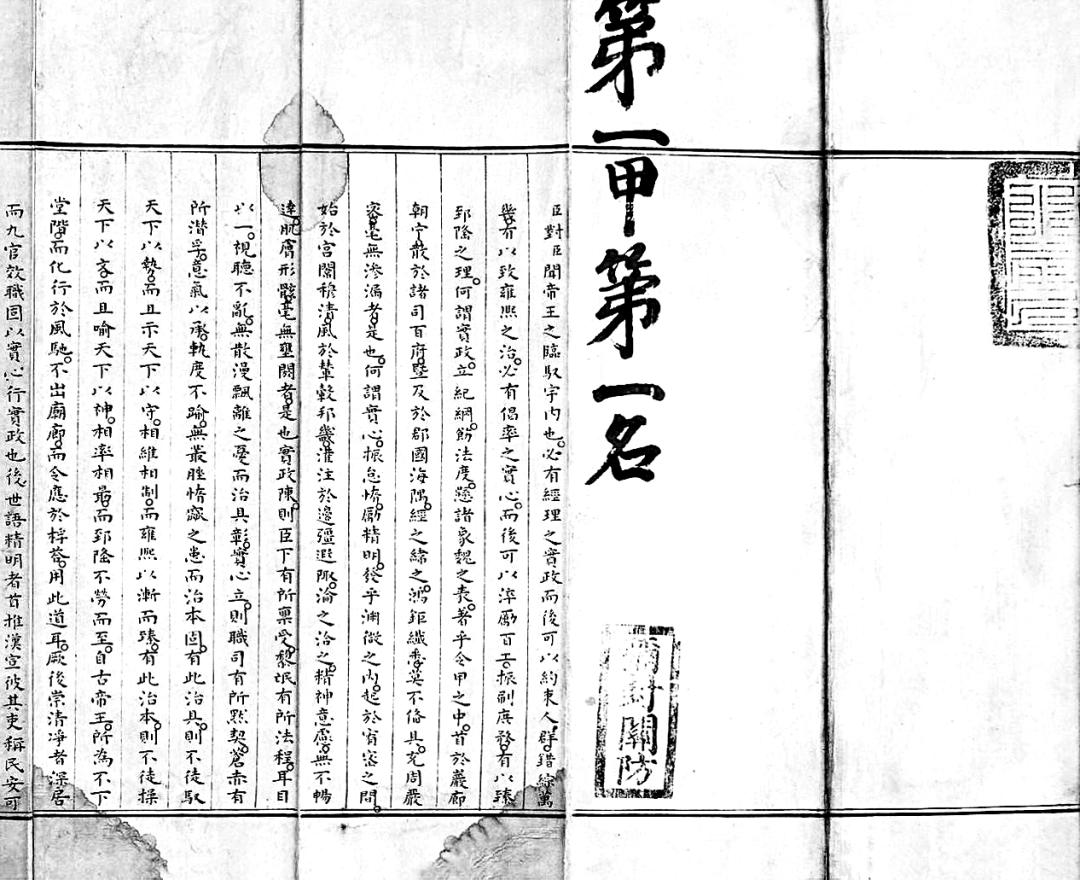 第一甲第一名
彌封關防
臣對臣聞帝王之臨馭宇內也必有經理之實政而後可以約束人群錯綜萬
幾有以致雍熙之治必有倡率之實心而後可以淬勵百工振刷庶務有以臻
郅隆之理何謂實政立紀綱飭法度懸諸象魏之表著乎令甲之中首於巖廊
朝宁散於諸司百府暨及於郡國海隅經之緯之鴻鉅纖悉莫不備具充周嚴
密毫無滲漏者是也何謂實心振怠惰勵精明發乎淵微之內起於宥密之間
始於宮闈穆清風於輦轂邦畿灌注於邊疆遐陬淪之洽之精神意慮無不暢
達肌膚形骸毫無壅閼者是也實政陳則臣下有所稟受黎氓有所法程耳目
以一視聽不亂無散漫飄離之憂而治具彰實心立則職司有所默契蒼赤有
所潛孚意氣以承軌度不踰無叢脞惰窳之患而治本固有此治具則不徒馭
天下以勢而且示天下以守相維相制而雍熙以漸而臻有此治本則不徒操
天下以衷而且喻天下以神相率相勗而郅隆不勞而至自古帝王所為不下
堂階而化行於風馳不出廟廊而令應於桴答用此道耳厥後崇清淨者深居
而九官效職固以實心行實政也後世語精明者首推漢宣彼其吏稱民安可